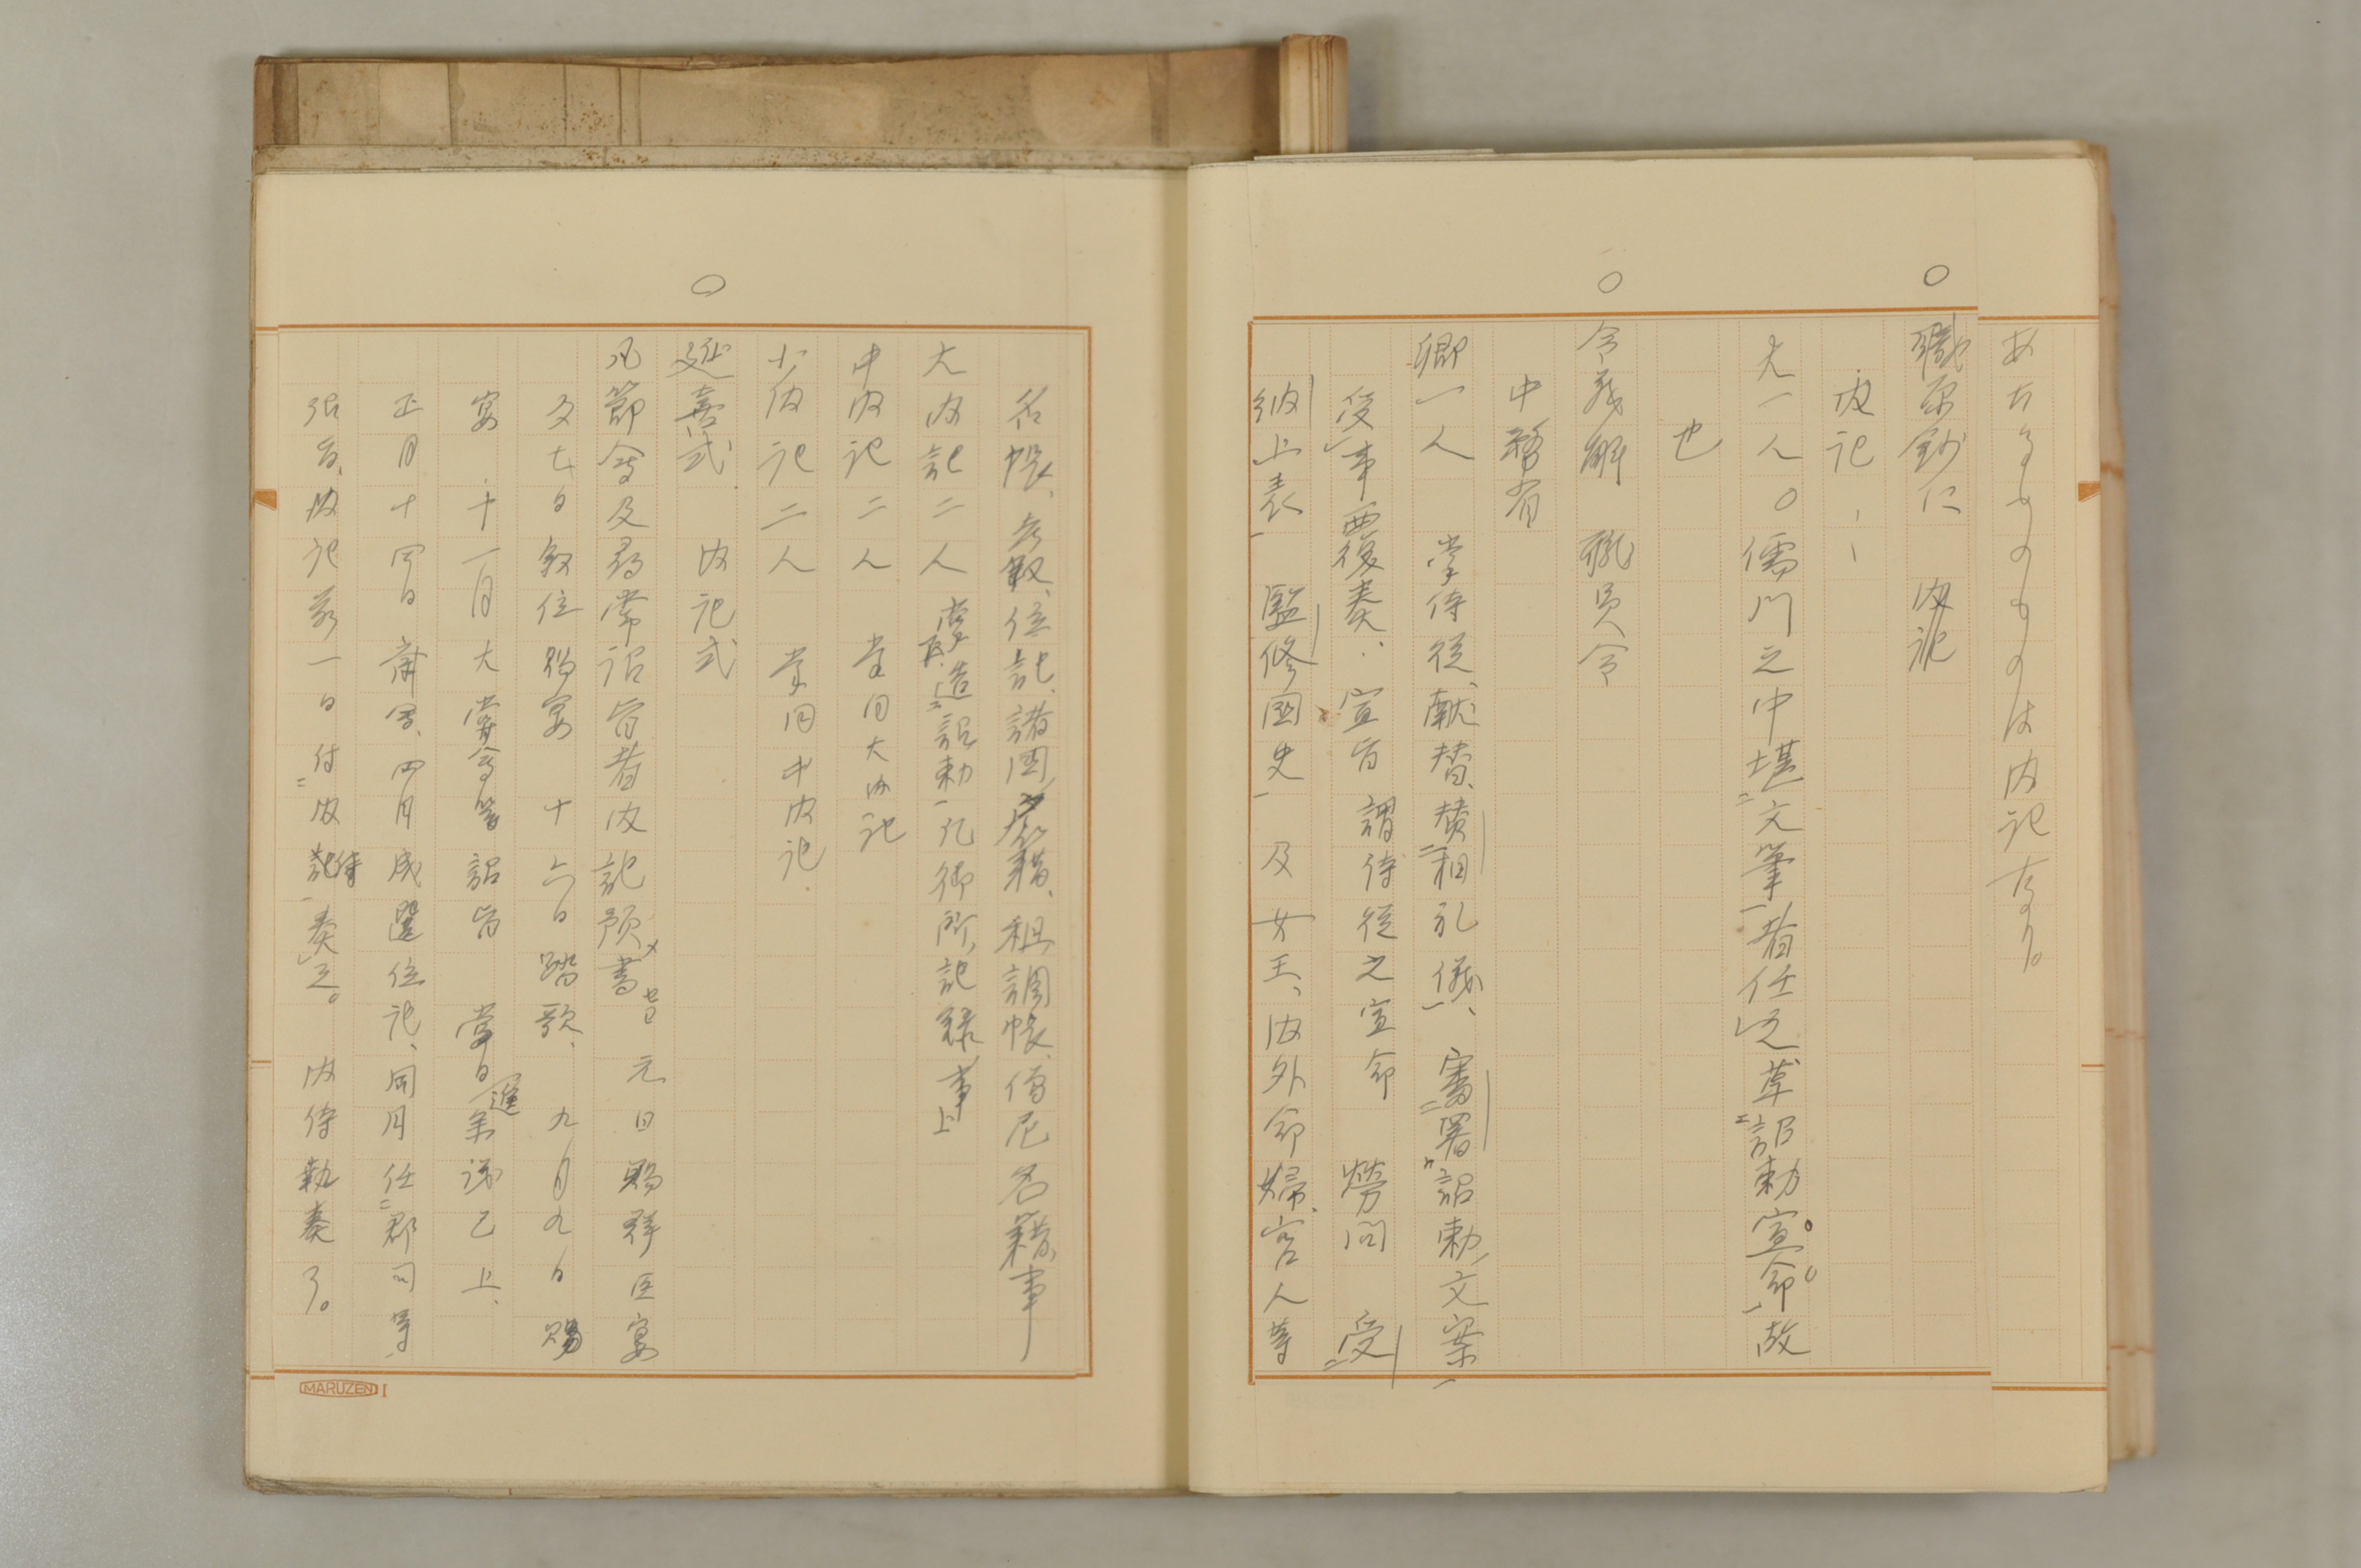 あたるものものは内記なり。
職原鈔に 内記
内記、、
大一人。儒門之中堪文筆者任之草詔勅宣命故
也
令義解 職員令
中務省
卿一人 掌侍従、献替、賛相礼儀、審署詔勅文案
受事覆奏、宣旨 謂侍従之宣命 労問 受
納上表 監修国史 及女王、内外命婦、宮人等
名帳、考叙、位記、諸国戸籍、租調帳、僧尼名籍事
大内記二人 掌造詔勅凡御所記録事
中内記二人 掌同大内記
少内記二人 掌同中内記
延喜式 内記式
凡節会及尋常詔旨者内記預書 元日賜群臣宴
七日叙位賜宴 十六日踏歌、九月九日賜
宴 十一月大嘗会等詔旨 当日進
正月十四日斎会、四月成選位記、同月任郡司等
詔旨、内記前一日付内侍奏之。 内侍執奏了。
MARUZEN I